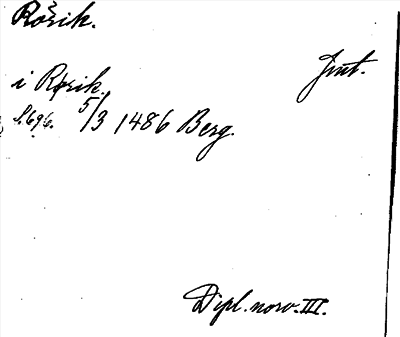 Rørik.
Jmt.
i Rørik.
S.696. 5/3 1486 Berg.
Dipl. norv. III.